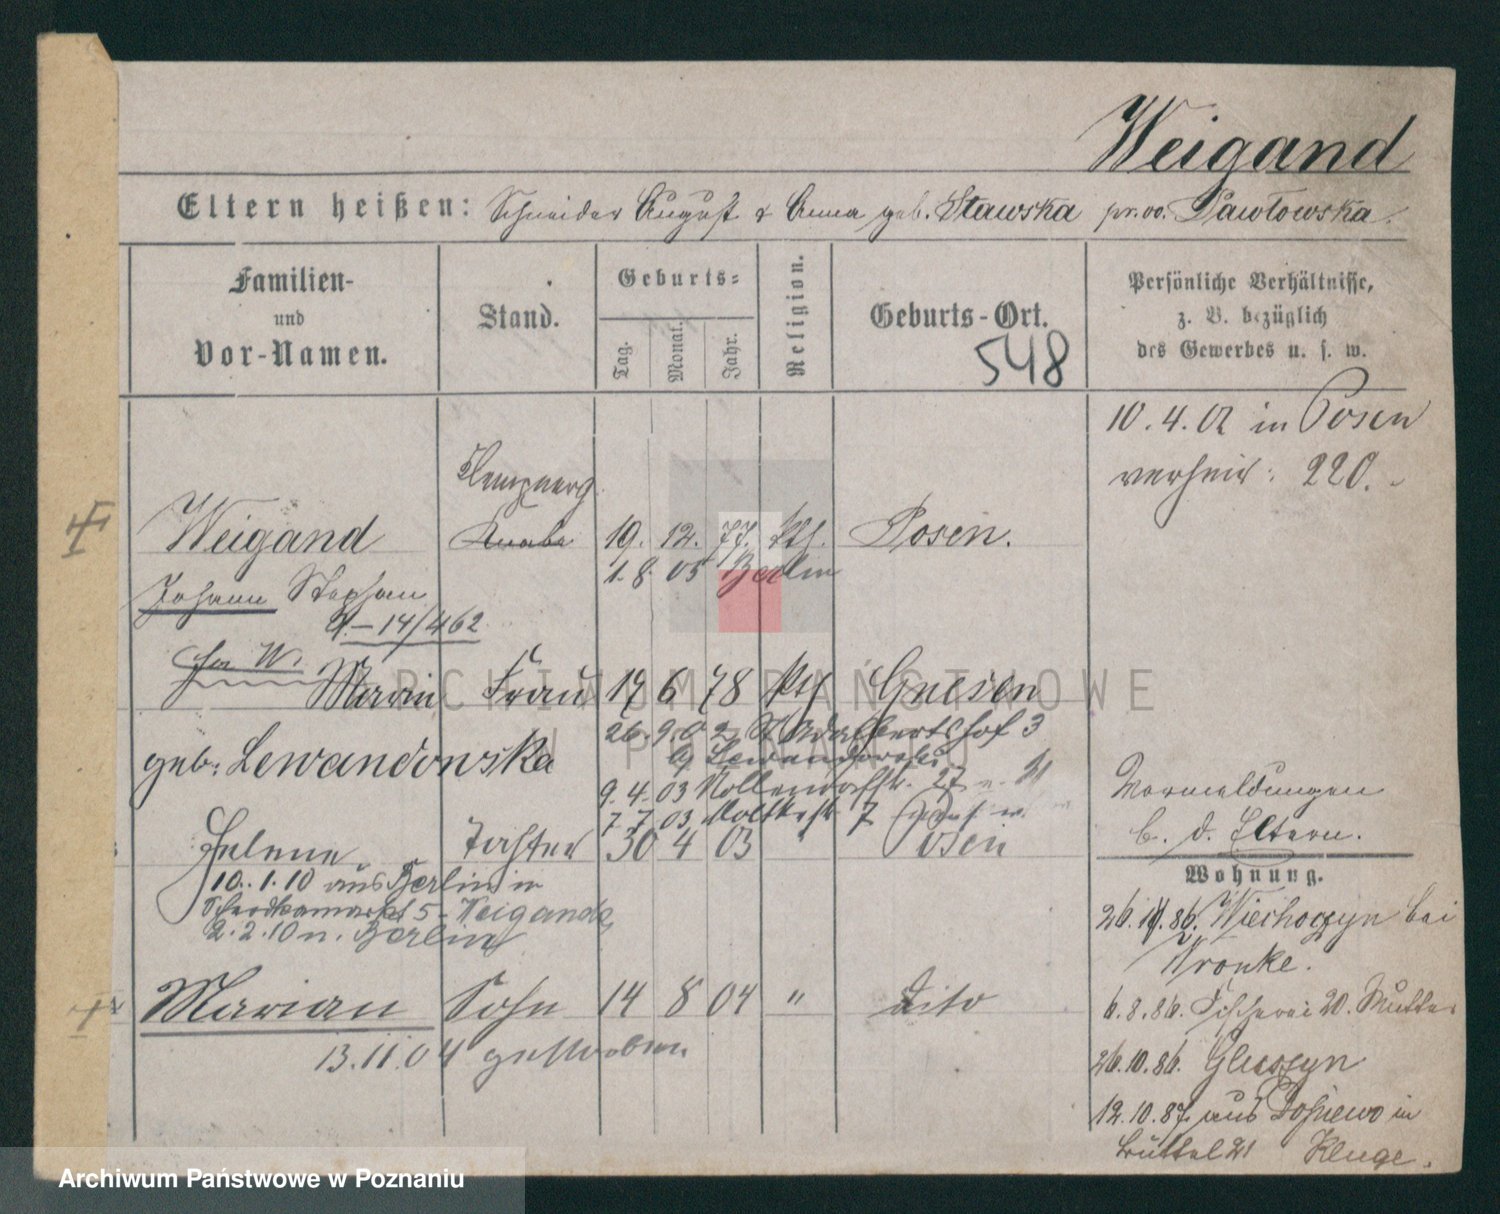 Weigand
Eltern heißen: Schneider August & Anna geb. Stawska pr. vo. Pawłowska.
Familien- und Vor-Namen.
Stand.
Geburts=
Tag.
Monat.
Jahr.
Religion.
Geburts-Ort.
548
Persönliche Verhältnisse,
z. B. bezüglich
des Gewerbes u. s. w.
10.4.02 in Posen
verheir: 220.
Klempnerg.
Weigand Knabe 19. 12. 77. kth. Posen.
1.8.05 Berlin
Johann Stephan
A.-14/462
Marie Frau 17 6 78 kth Gnesen
geb. Lewandowska
26.9.02 St Adalbertshof 3
b/ Lewandowski
9.4.03 Nollendorfstr. 27
7.7.03 Moltkestr 7
Helene Tochter 30 4 03 " Posen
10.1.10 aus Berlin in
5 - Weigand
2.2.10 n. Berlin
Marian Sohn 14 8 04 " dito
13.11.04 gestorben
Vormeldungen
b. d. Eltern.
Wohnung.
Wiechoczyn bei
Wronke.
6.8.86. Fischerei 20. Mutter
26.10.86. Gluszyn
12.10.87 aus in
Büttel 21 Kluge.
ARCHIWUM PAŃSTWOWE
W POZNANIU
Archiwum Państwowe w Poznaniu